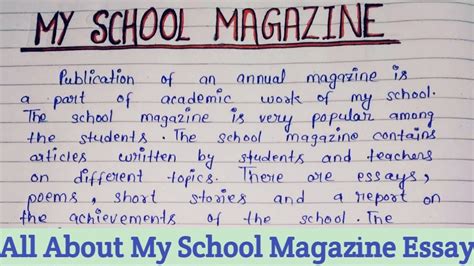 MY SCHOOL MAGAZINE
Publication of an annual magazine is
a part of academic work of my school.
The school magazine is very popular among
the students. The school magazine contains
articles written by students and teachers
on different topics. There are essays,
poems, short stories and a report on
the achievements of the school. The
All About My School Magazine Essay